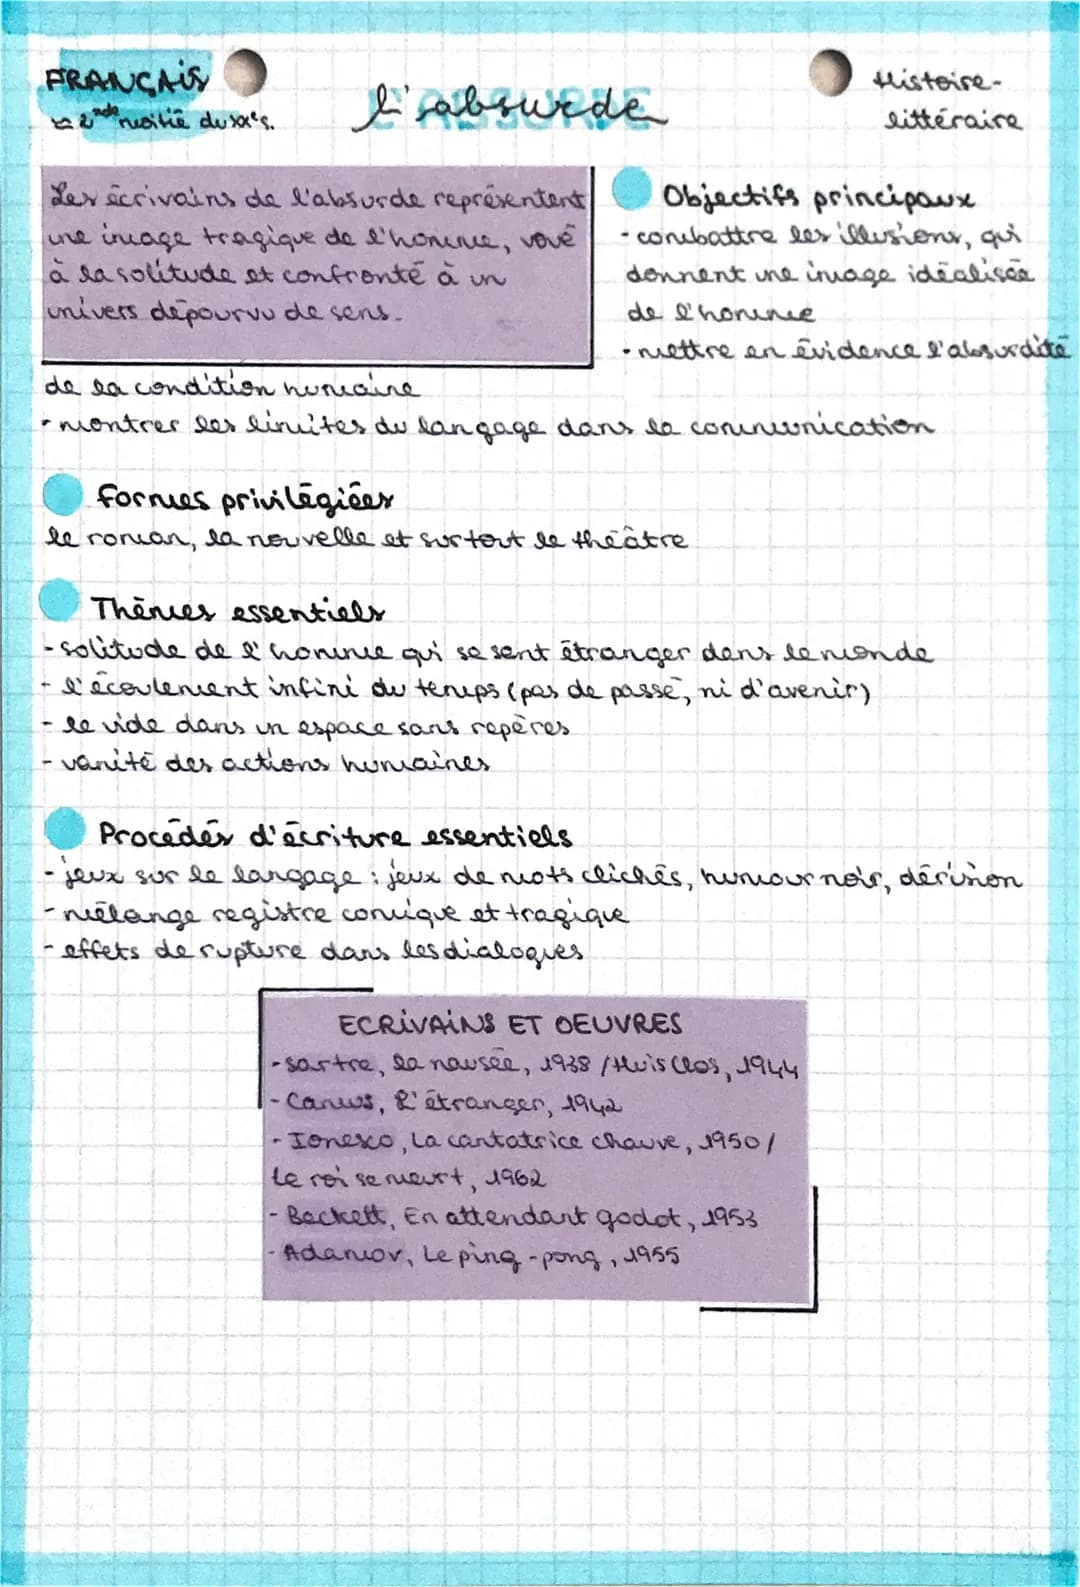 FRANÇAIS
≈ 2nde moitié du XXe s.
l'absurde
L'ABSURDE
Histoire-
littéraire
Les écrivains de l'absurde représentent
une image tragique de l'homme, voué
à la solitude et confronté à un
univers dépourvu de sens.
Objectifs principaux
- combattre les illusions, qui
donnent une image idéalisée
de l'homme
- mettre en évidence l'absurdité
de la condition humaine
- montrer les limites du langage dans la communication
Formes privilégiées
le roman, la nouvelle et surtout le théâtre
Thèmes essentiels
- solitude de l'homme qui se sent étranger dans le monde
- l'écoulement infini du temps (pas de passé, ni d'avenir)
- le vide dans un espace sans repères
- vanité des actions humaines
Procédés d'écriture essentiels
- jeux sur le langage : jeux de mots clichés, humour noir, dérision
- mélange registre comique et tragique
- effets de rupture dans les dialogues
ECRIVAINS ET OEUVRES
- Sartre, la nausée, 1938 / Huis Clos, 1944
- Camus, L'étranger, 1942
- Ionesco, La cantatrice chauve, 1950 /
Le roi se meurt, 1962
- Beckett, En attendant godot, 1953
- Adamov, Le ping-pong, 1955